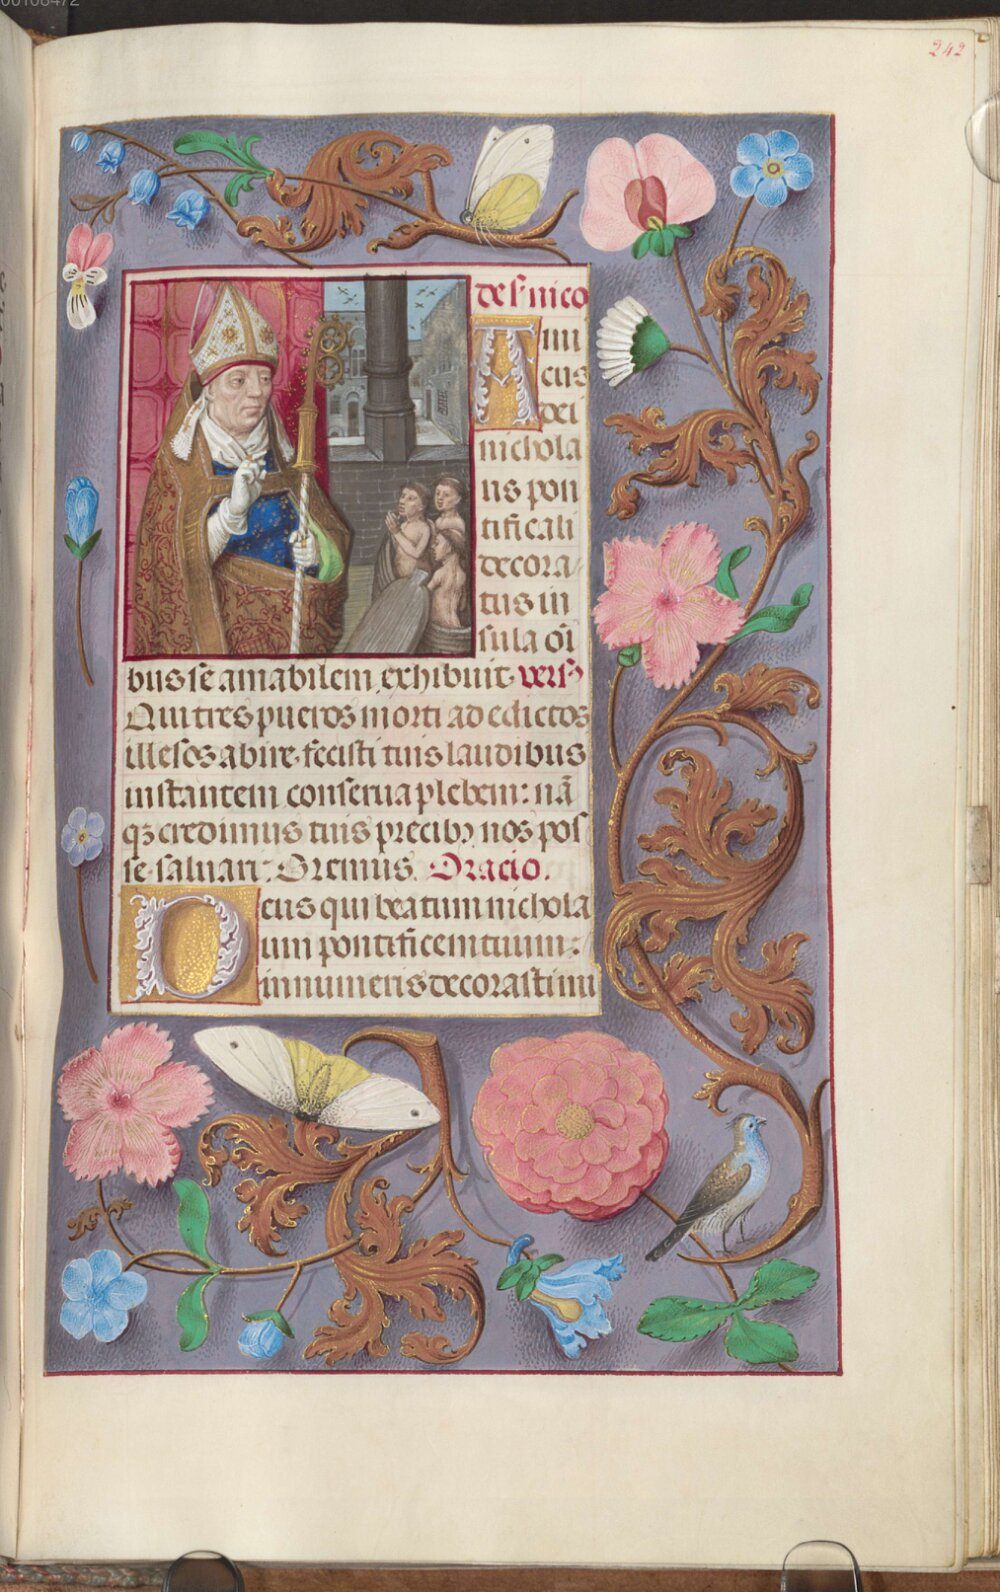 242
de s nico
Ami
cus
dei
nichola
us pon
tificali
decora
tus in
sula oi
bus se amabilem exhibuit. vers
Qui tres pueros morti ad edictos
illesos abire fecisti tuis laudibus
instantem conserua plebem: nā
qꝫ credimus tuis precibꝫ nos pos
se saluari. Oremus. Oracio.
Deus qui beatum nichola
um pontificem tuum:
innumeris decorasti mi